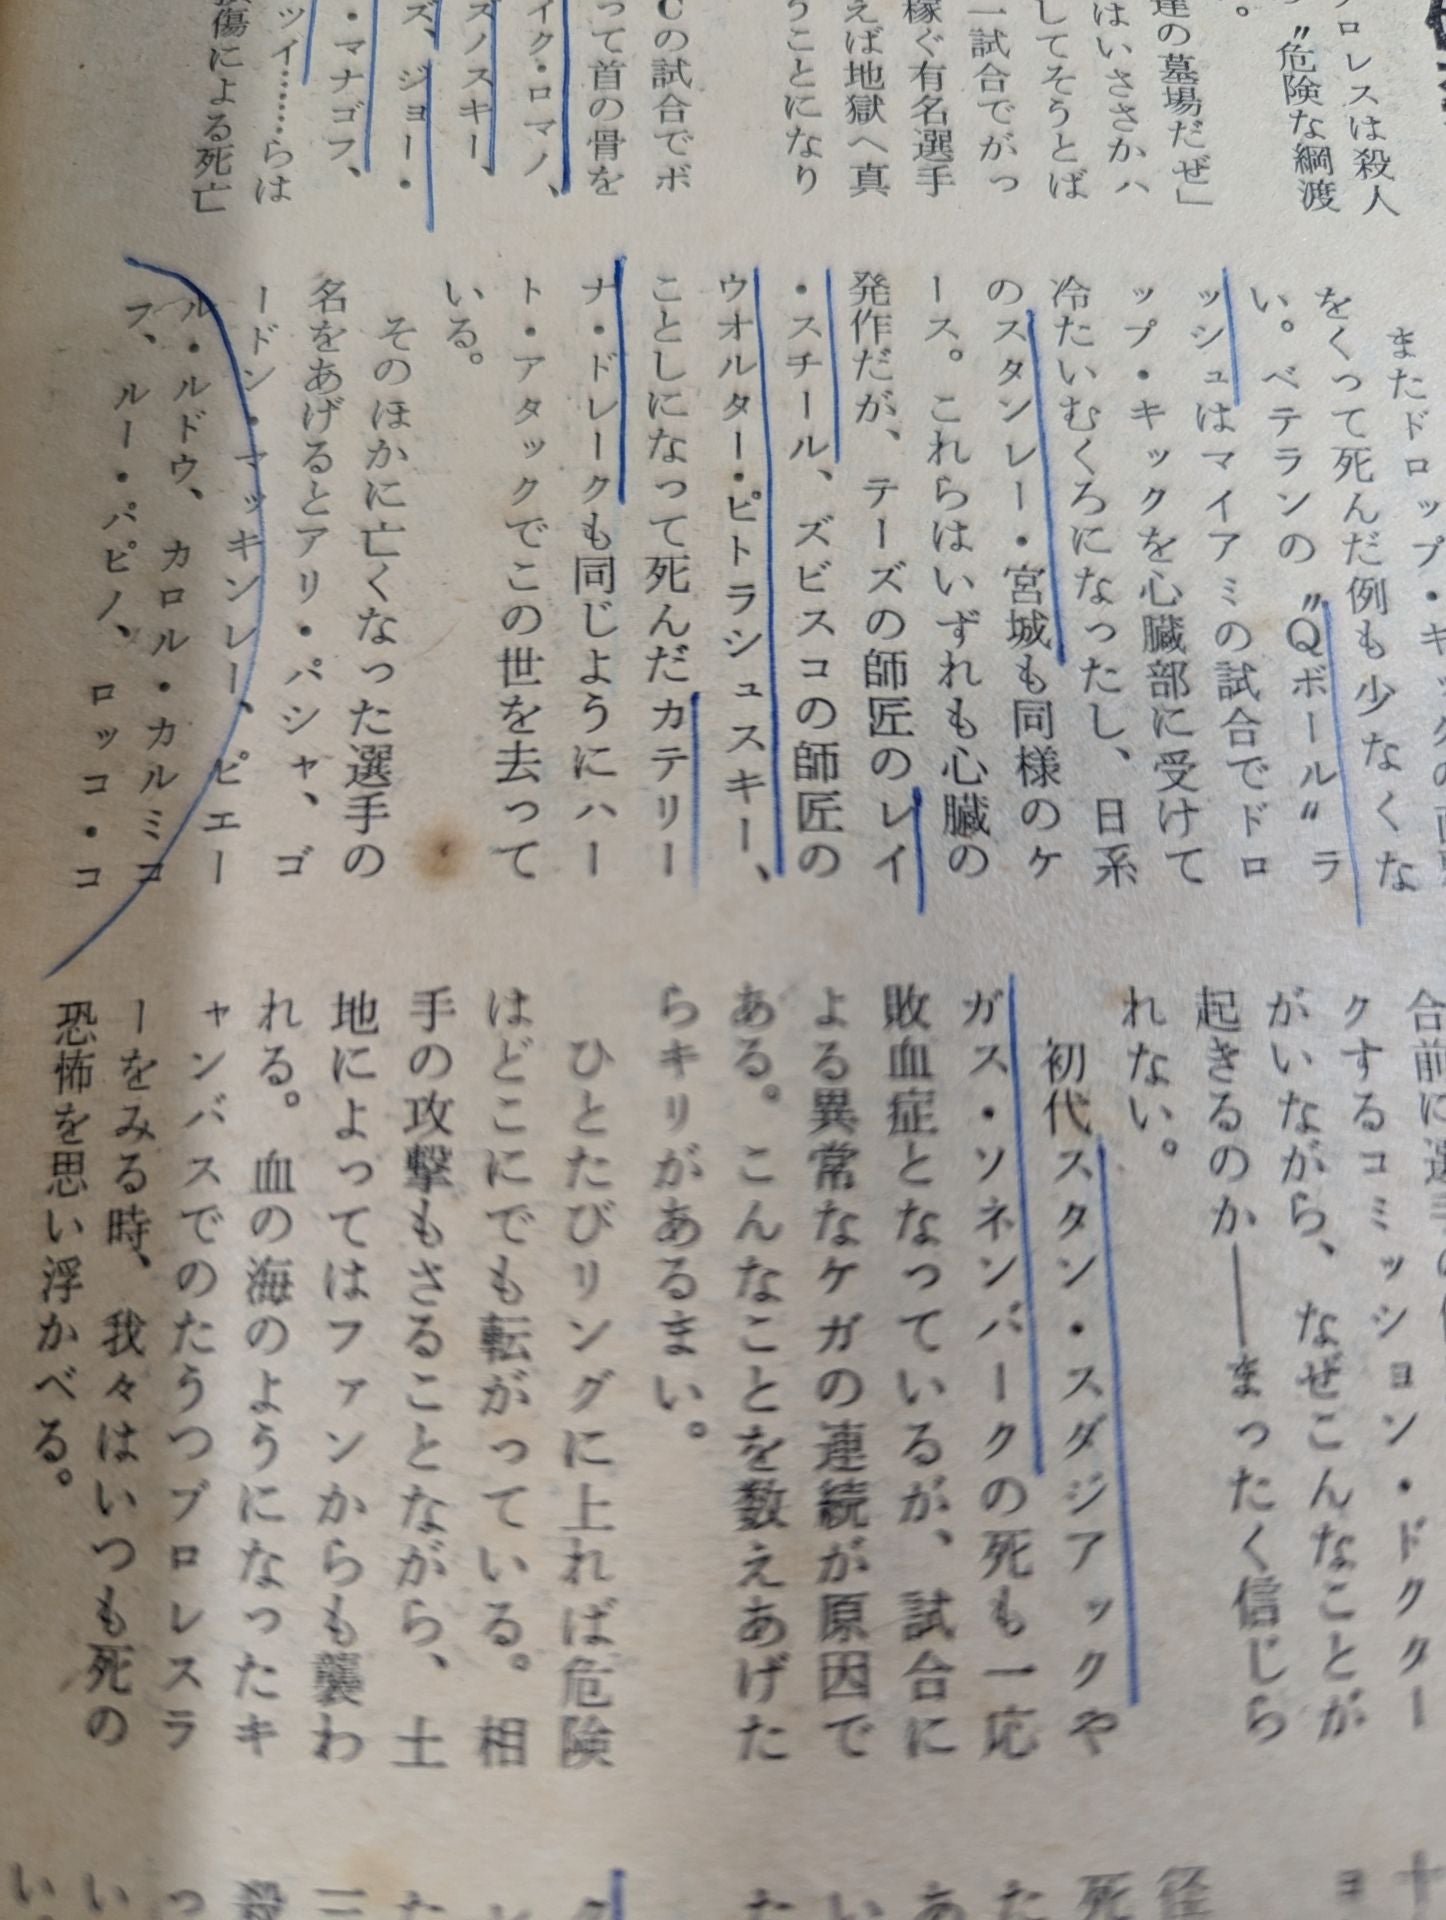 ロレスは殺人
〝危険な綱渡
。
達の墓場だぜ」
はいささかハ
してそうとば
一試合でがっ
稼ぐ有名選手
えば地獄へ真
うことになり
Cの試合でボ
って首の骨を
イク・ロマノ、
ズノスキー、
ズ、ジョー・
・マナゴフ、
ツイ……らは
損傷による死亡
またドロップ・キックの
をくって死んだ例も少なくな
い。ベテランの〝Qボール〟ラ
ッシュはマイアミの試合でドロ
ップ・キックを心臓部に受けて
冷たいむくろになったし、日系
のスタンレー・宮城も同様のケ
ース。これらはいずれも心臓の
発作だが、テーズの師匠のレイ
・スチール、ズビスコの師匠の
ウオルター・ピトラシュスキー、
ことしになって死んだカテリー
ナ・ドレークも同じようにハー
ト・アタックでこの世を去って
いる。
そのほかに亡くなった選手の
名をあげるとアリ・パシャ、ゴ
ードン・マッキンレー、ピエー
ル・ルドウ、カロル・カルミコ
フ、ルー・パピノ、ロッコ・コ
合前に選手の
クするコミッション・ドクター
がいながら、なぜこんなことが
起きるのか――まったく信じら
れない。
初代スタン・スダジアックや
ガス・ソネンバークの死も一応
敗血症となっているが、試合に
よる異常なケガの連続が原因で
ある。こんなことを数えあげた
らキリがあるまい。
ひとたびリングに上れば危険
はどこにでも転がっている。相
手の攻撃もさることながら、土
地によってはファンからも襲わ
れる。血の海のようになったキ
ャンバスでのたうつプロレスラ
ーをみる時、我々はいつも死の
恐怖を思い浮かべる。